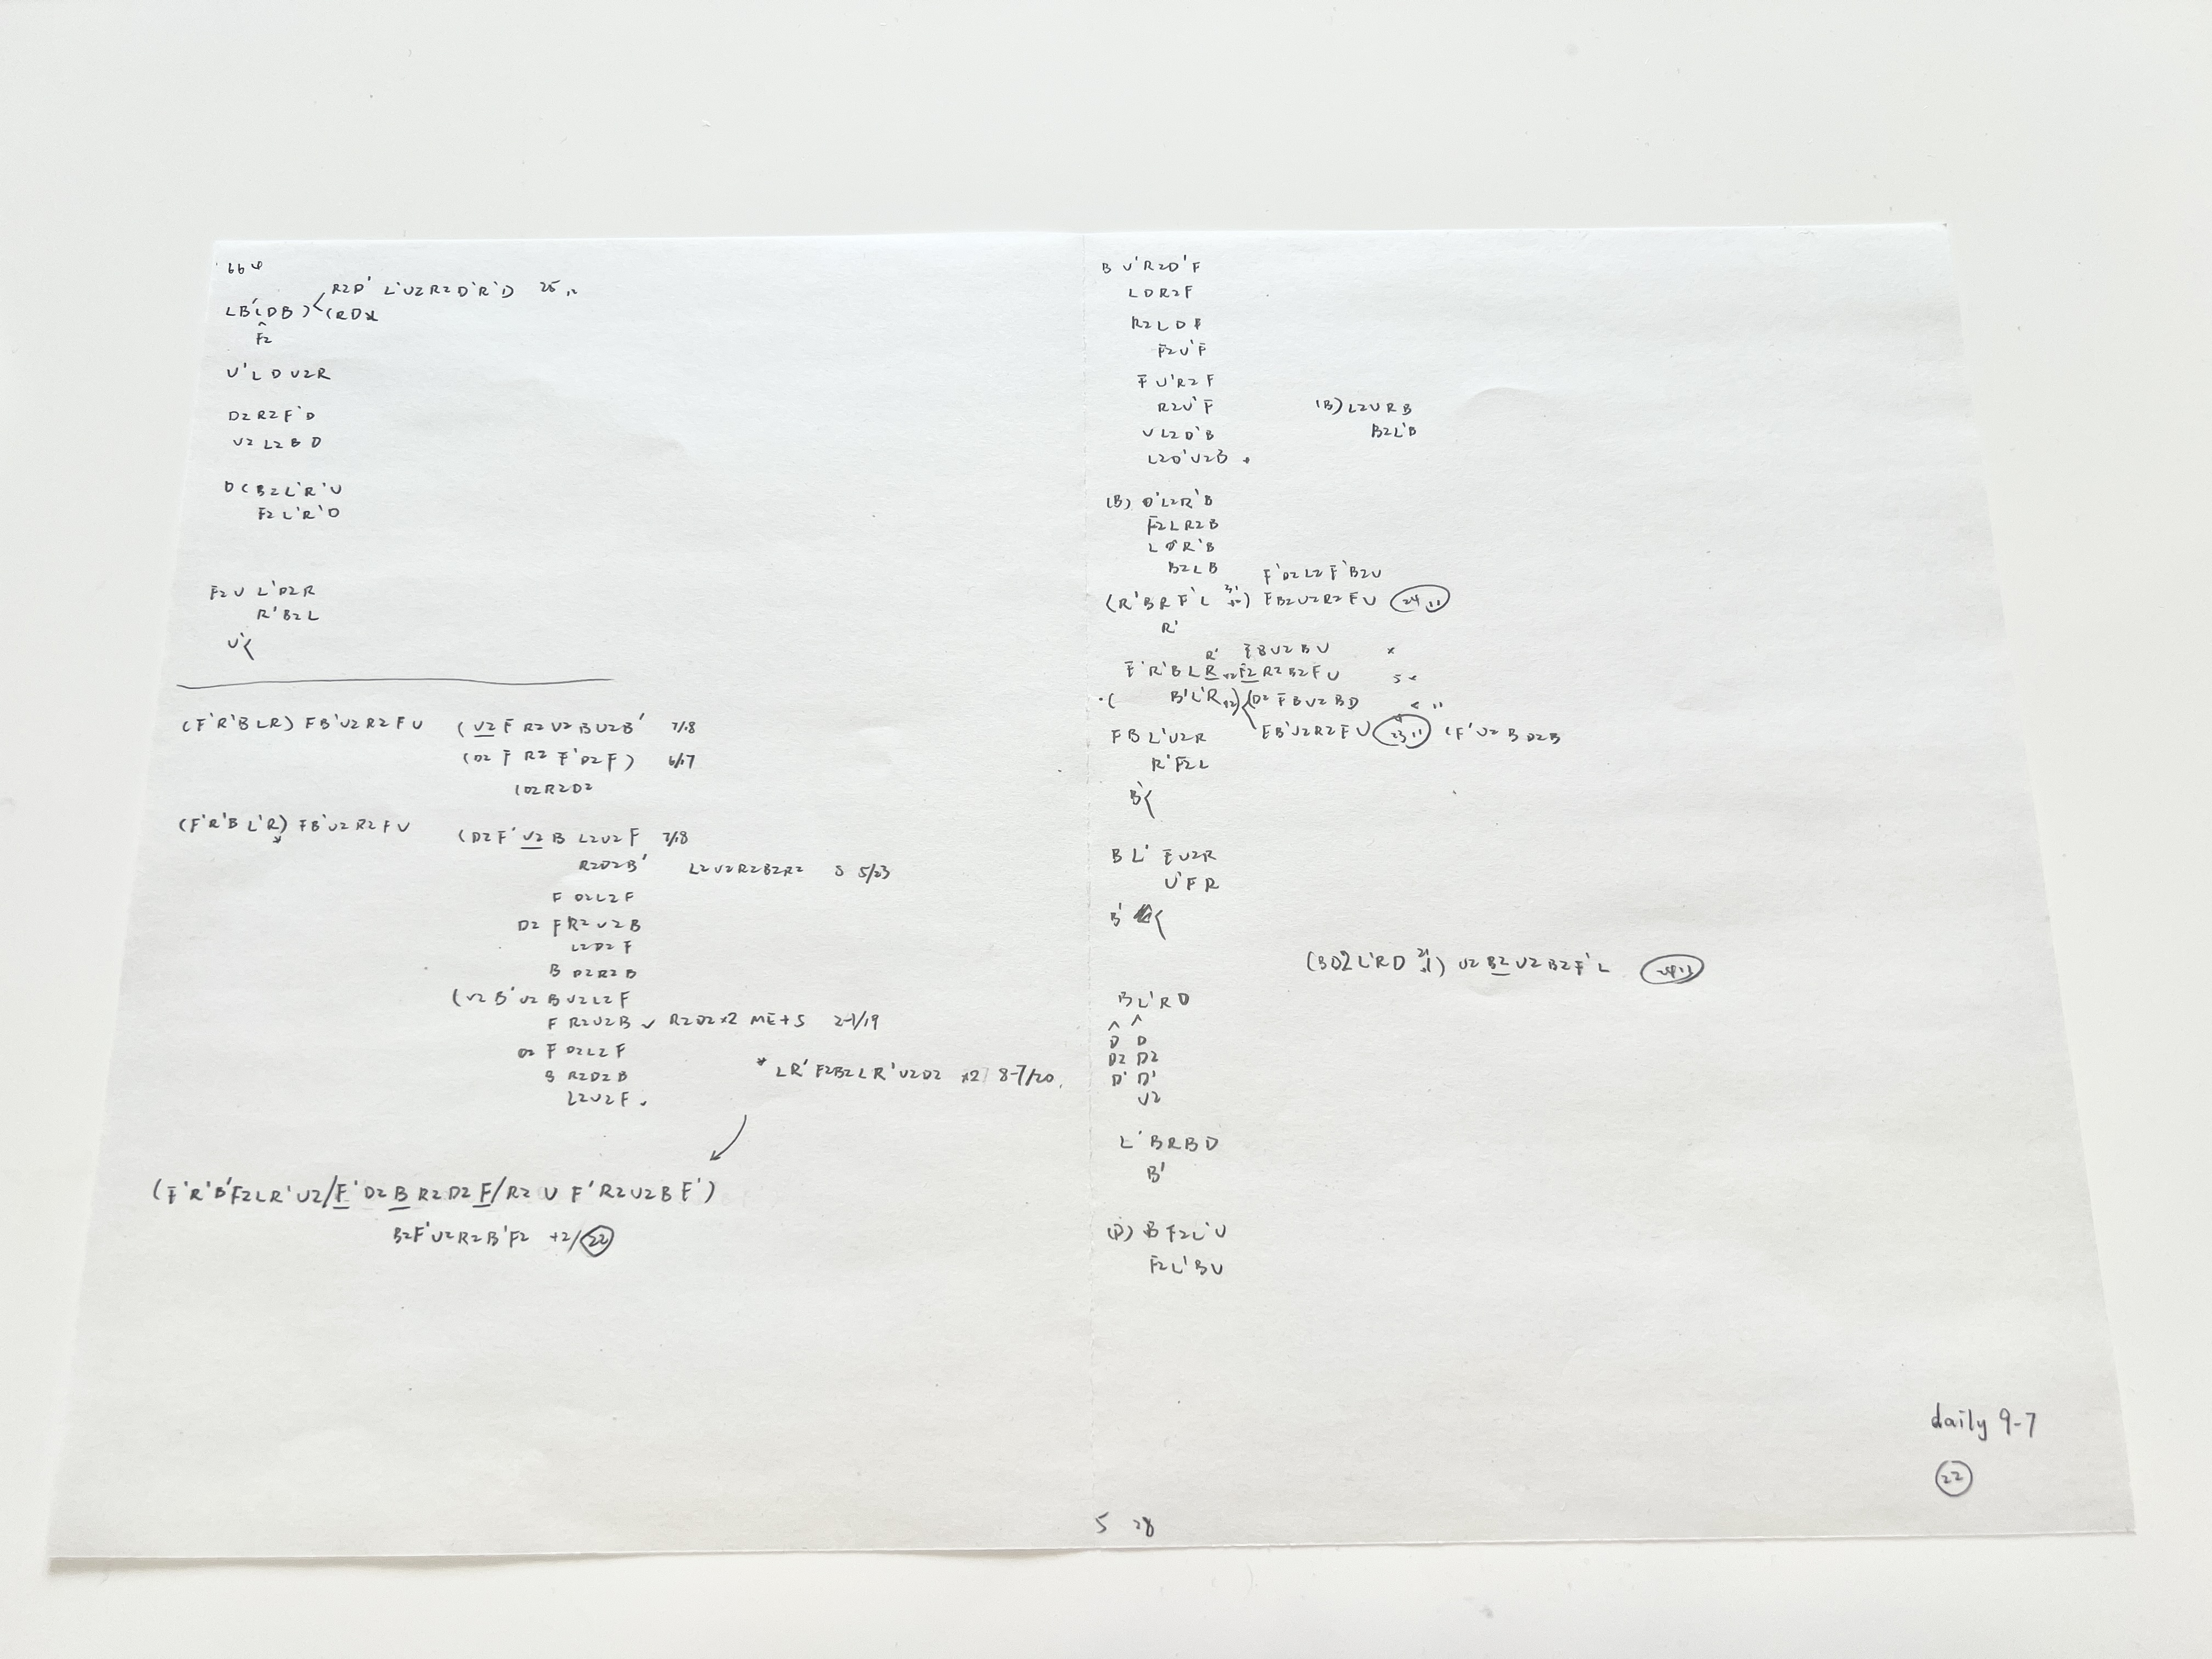 R2D' L'U2R2D'R'D 25
LB'(DB) (RD
F2
U'L D U2R
D2 R2 F'D
U2 L2 B D
D ( B2 L'R'U
F2 L'R'D
F2 U L'D2R
R'B2L
U'
(F'R'BLR) FB'U2R2FU (U2 F R2 U2 B U2 B' 7/18
(D2 F R2 F'D2 F) 6/17
(D2R2D2
(F'R'B L'R) FB'U2R2FU (D2 F' U2 B L2U2F 7/18
R2D2B' L2U2R2B2R2 S 5/23
F D2L2F
D2 F R2 U2 B
L2D2 F
B D2R2 B
(U2 B'U2 B U2L2F
F R2U2B ✓ R2D2 x2 ME+S 2-1/19
D2 F D2L2 F
B R2D2B
L2U2F
* LR' F2B2LR'U2D2 x2 8-7/20
(F'R'B'F2LR'U2/F'D2 B R2D2 F/R2 U F'R2U2BF')
B2F'U2R2B'F2 +2/22
B U'R2D'F
L D R2F
R2 L D F
F2U'F
F U'R2 F
R2U'F (B) L2U R B
U L2 D'B B2L'B
L2D'U2B
(B) D'L2R'B
F2LR2B
L D'R'B
B2L B
F'D2 L2 F'B2U
(R'BR F'L ) FB2U2R2FU 24
R'
R' F B U2 B U x
F'R'BL R F2R2B2FU 5
( B'L'R ) (D2 F B U2 B D
F B L'U2R FB'U2R2FU 23 (F'U2 B D2B
R'F2L
B'
B L' F U2R
U'F R
B'
(BD2L'RD 21) U2 B2 U2B2F'L
B L'R D
^ ^
D D
D2 D2
D' D'
U2
L'BRBD
B'
(D) B F2L'U
F2L'BU
daily 9-7
22
5 28